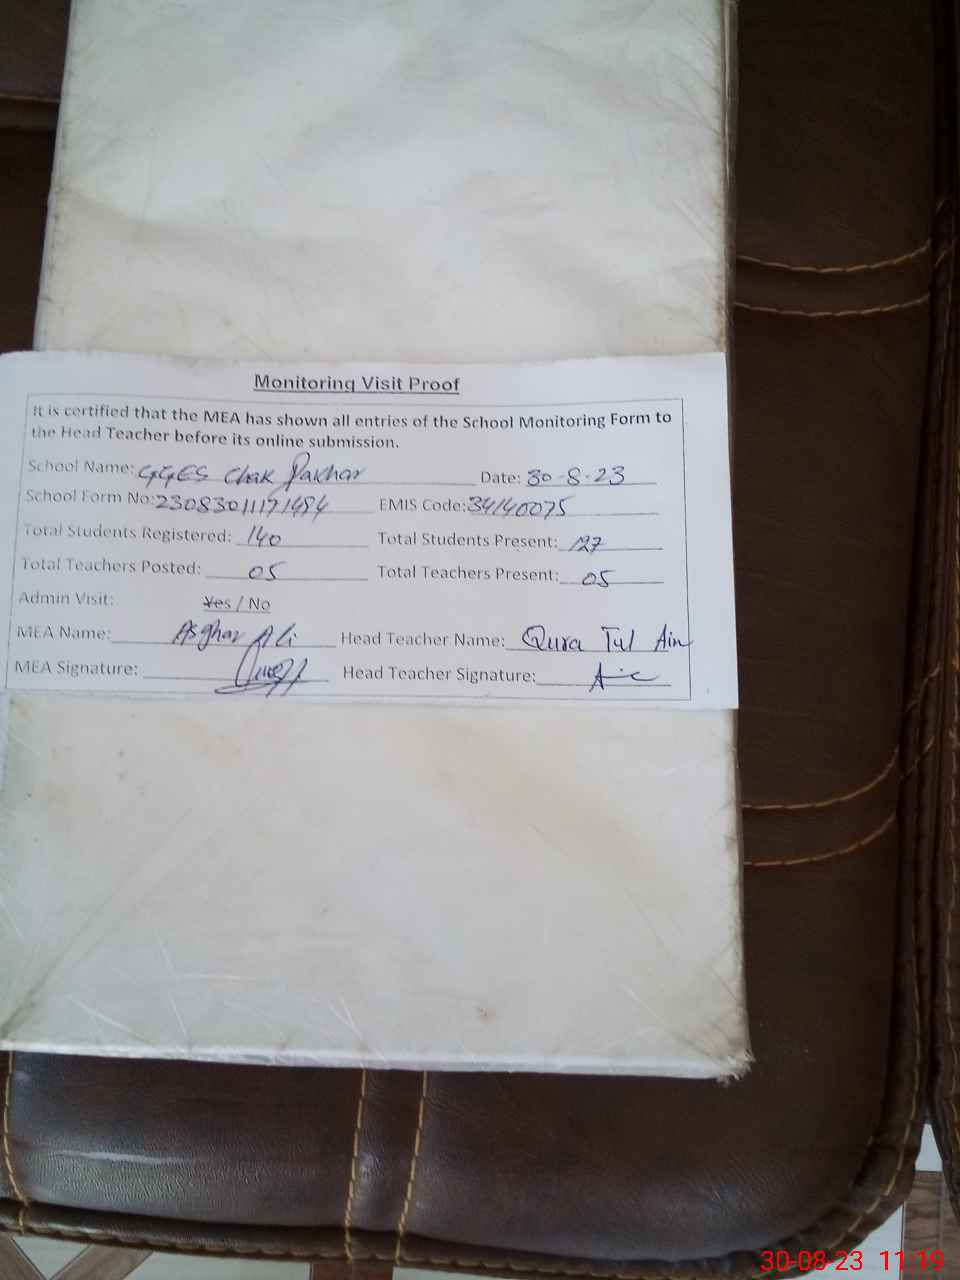 Monitoring Visit Proof
It is certified that the MEA has shown all entries of the School Monitoring Form to
the Head Teacher before its online submission.
School Name: GGES Chak Pakhar Date: 30-8-23
School Form No: 23083011171484 EMIS Code: 34140075
Total Students Registered: 140 Total Students Present: 127
Total Teachers Posted: 05 Total Teachers Present: 05
Admin Visit: Yes / No
MEA Name: Asghar Ali Head Teacher Name: Qura Tul Ain
MEA Signature: Head Teacher Signature:
30-08-23 11:19